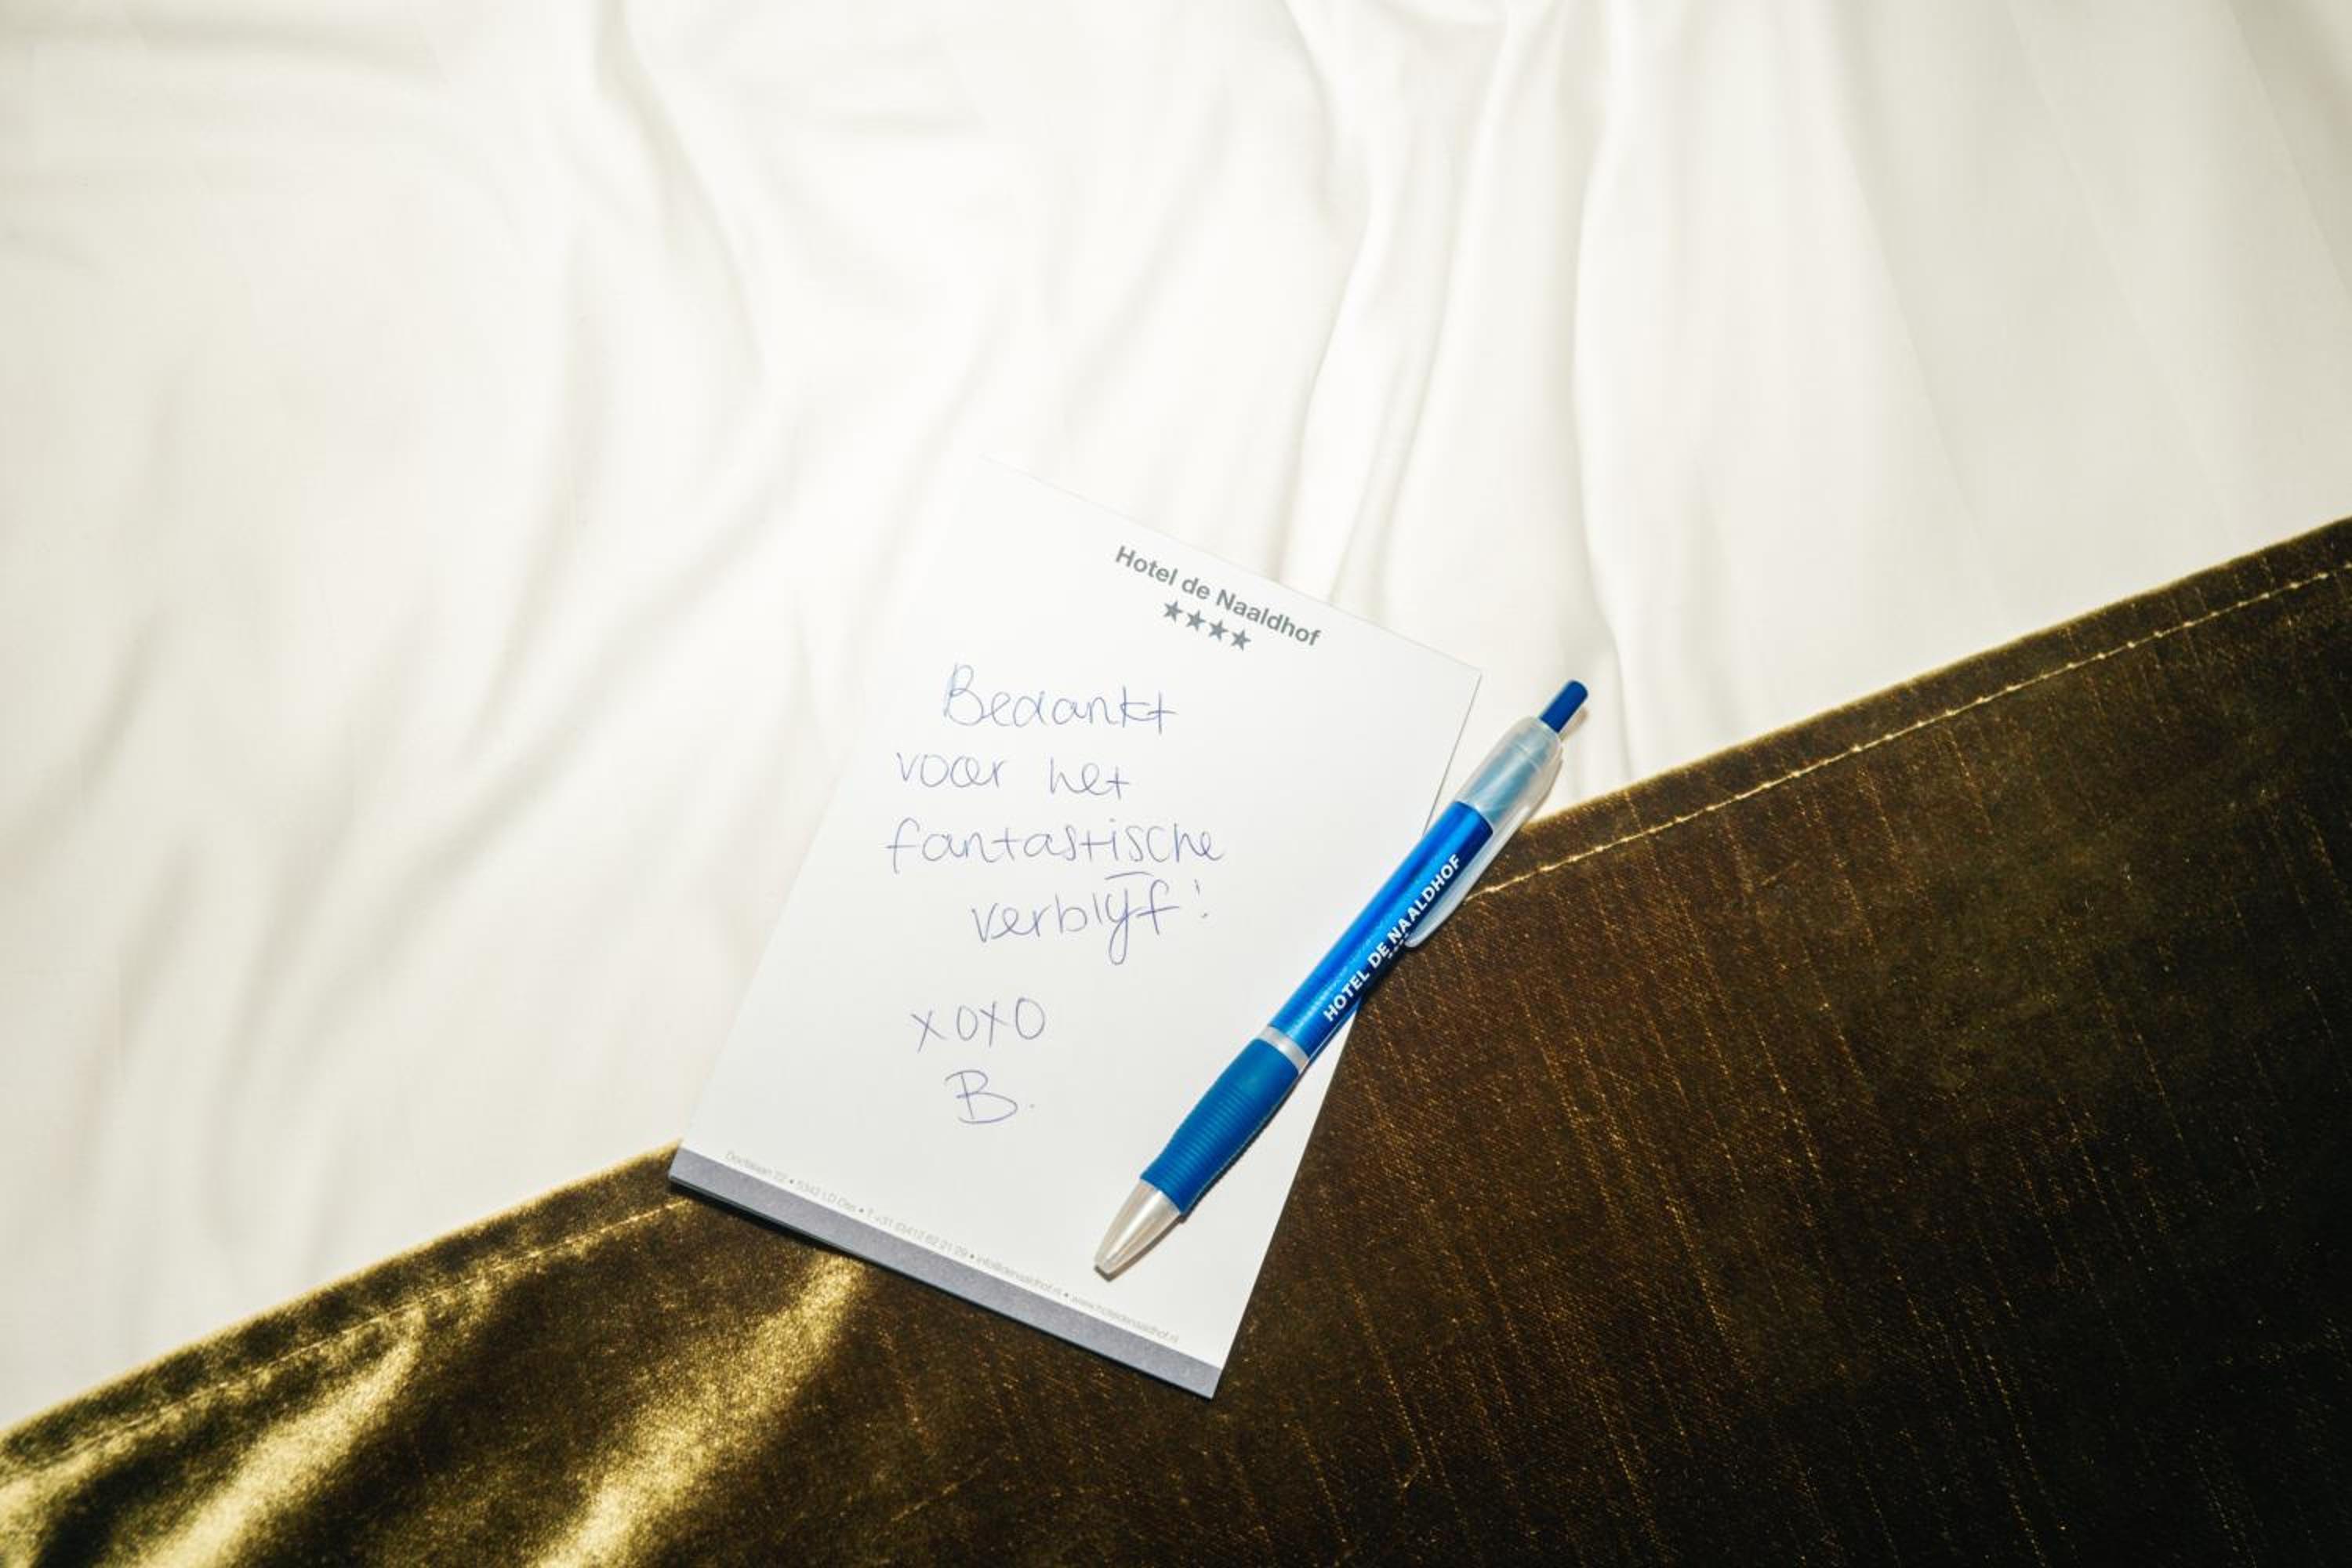 Hotel de Naaldhof
★★★★
Bedankt
voor het
fantastische
verblijf!
xoxo
B.
HOTEL DE NAALDHOF
22 • 5342 LD Oss • T +31 (0)412 62 21 29 • info@denaaldhof.nl • www.hoteldenaaldhof.nl